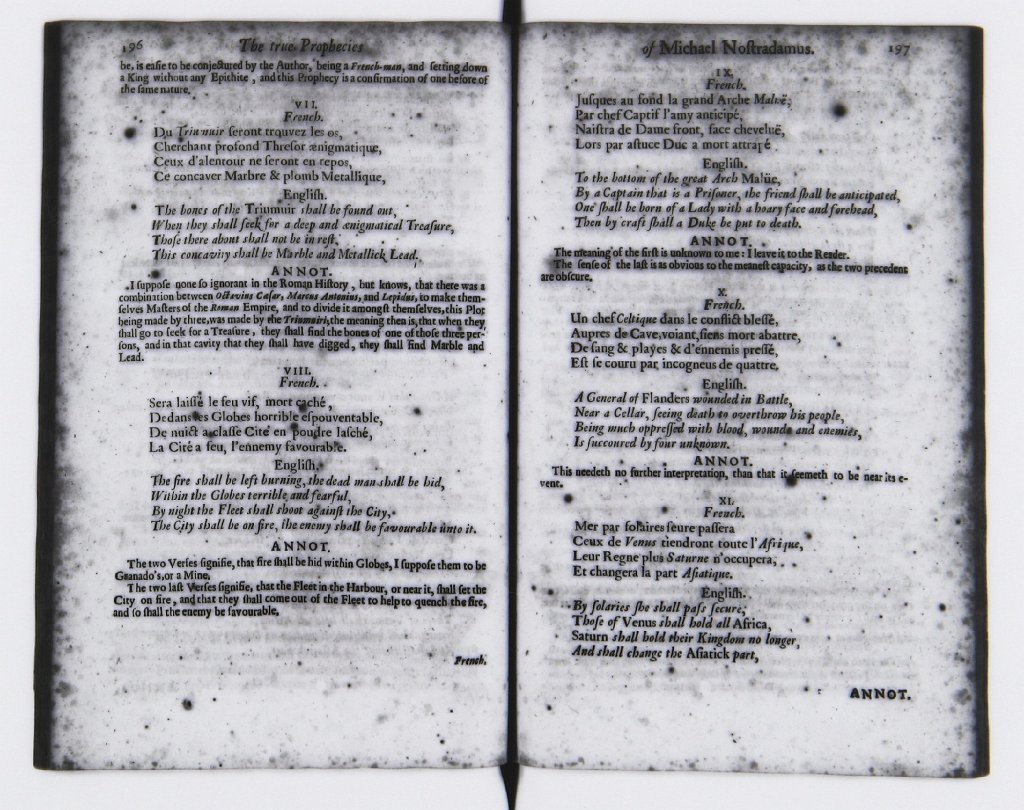 196 The true Prophecies
be, is easie to be conjectured by the Author, being a French-man, and setting down
a King without any Epithite, and this Prophecy is a confirmation of one before of
the same nature.
VII.
French.
Du Triumuir seront trouvez les os,
Cherchant profond Thresor ænigmatique,
Ceux d'alentour ne seront en repos,
Ce concaver Marbre & plomb Metallique,
English.
The bones of the Triumuir shall be found out,
When they shall seek for a deep and ænigmatical Treasure,
Those there about shall not be in rest,
This concavity shall be Marble and Metallick Lead.
ANNOT.
I suppose none so ignorant in the Roman History, but knows, that there was a
combination between Octavius Cæsar, Marcus Antonius, and Lepidus, to make them-
selves Masters of the Roman Empire, and to divide it amongst themselves, this Plot
being made by three, was made by the Triumuiri, the meaning then is, that when they
shall go to seek for a Treasure, they shall find the bones of one of those three per-
sons, and in that cavity that they shall have digged, they shall find Marble and
Lead.
VIII.
French.
Sera laissé le feu vif, mort caché,
Dedans les Globes horrible espouventable,
De nuict a classe Cité en poudre lasché,
La Cité a feu, l'ennemy favourable.
English.
The fire shall be left burning, the dead man shall be hid,
Within the Globes terrible and fearful,
By night the Fleet shall shoot against the City,
The City shall be on fire, the enemy shall be favourable unto it.
ANNOT.
The two Verses signifie, that fire shall be hid within Globes, I suppose them to be
Granado's, or a Mine.
The two last Verses signifie, that the Fleet in the Harbour, or near it, shall set the
City on fire, and that they shall come out of the Fleet to help to quench the fire,
and so shall the enemy be favourable.
French.
of Michael Nostradamus. 197
IX.
French.
Jusques au fond la grand Arche Maluë,
Par chef Captif l'amy anticipé,
Naistra de Dame front, face cheveluë,
Lors par astuce Duc a mort attrapé.
English.
To the bottom of the great Arch Malüe,
By a Captain that is a Prisoner, the friend shall be anticipated,
One shall be born of a Lady with a hoary face and forehead,
Then by craft shall a Duke be put to death.
ANNOT.
The meaning of the first is unknown to me: I leave it to the Reader.
The sense of the last is as obvious to the meanest capacity, as the two precedent
are obscure.
X.
French.
Un chef Celtique dans le conflict blessé,
Aupres de Cave, voiant, siens mort abattre,
De sang & playes & d'ennemis pressé,
Est se couru par incogneus de quattre.
English.
A General of Flanders wounded in Battle,
Near a Cellar, seeing death to overthrow his people,
Being much oppressed with blood, wounds and enemies,
Is succoured by four unknown.
ANNOT.
This needeth no further interpretation, than that it seemeth to be near its e-
vent.
XI.
French.
Mer par solaires seure passera
Ceux de Venus tiendront toute l'Afrique,
Leur Regne plus Saturne n'occupera,
Et changera la part Asiatique.
English.
By solaries she shall pass secure,
Those of Venus shall hold all Africa,
Saturn shall hold their Kingdom no longer,
And shall change the Asiatick part,
ANNOT.